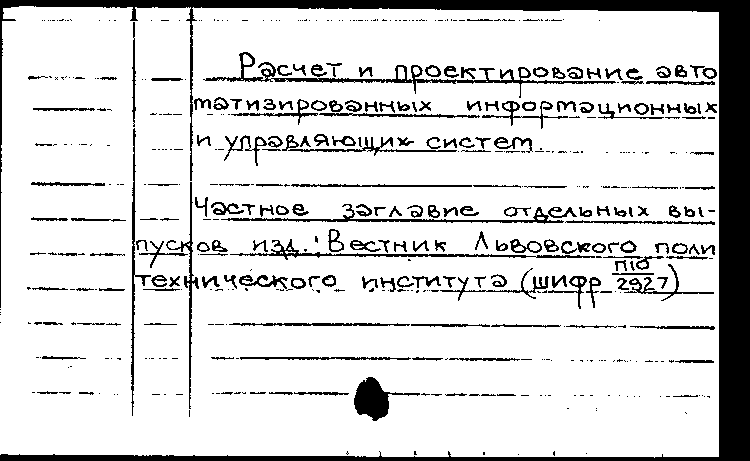 Расчет и проектирование авто
матизированных информационных
и управляющих систем.
Частное заглавие отдельных вы-
пусков изд.: Вестник Львовского поли
технического института (шифр П10/2927)